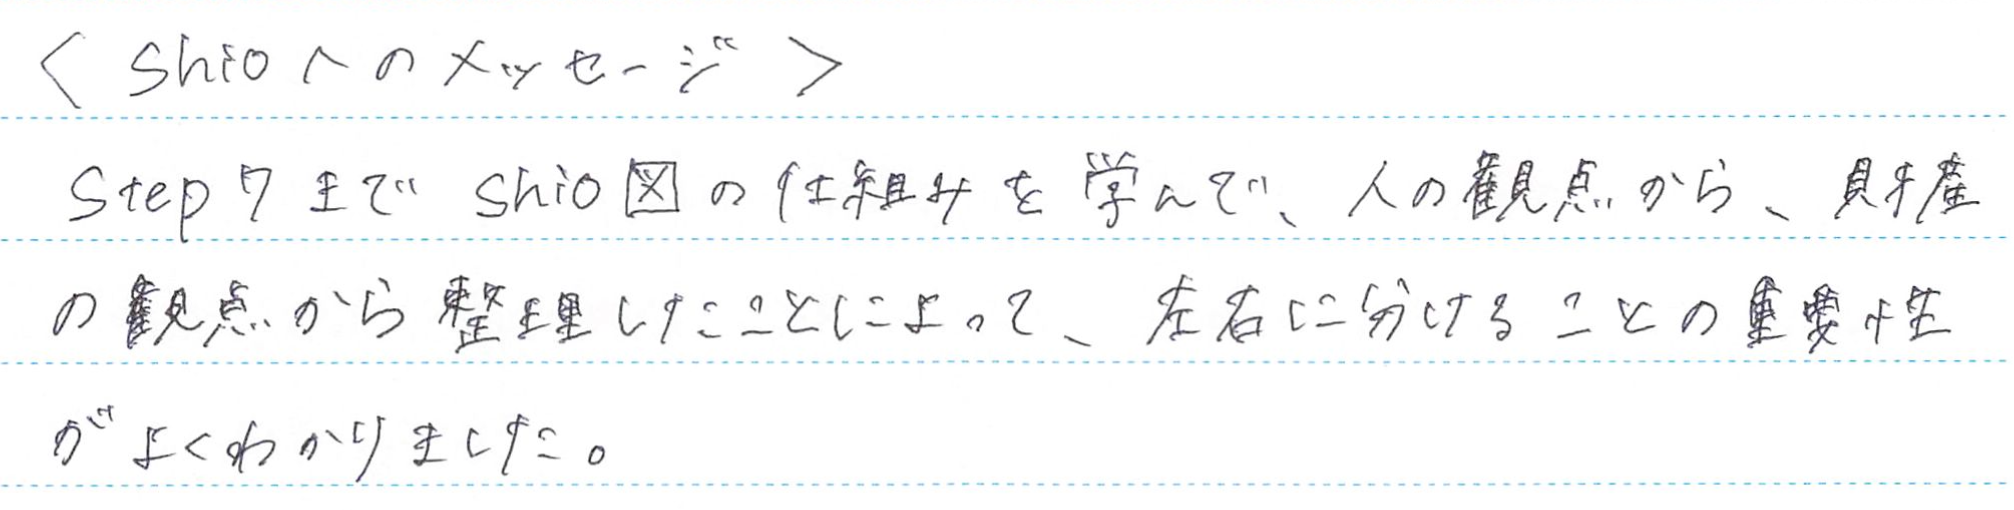 ＜ Shioへのメッセージ ＞
Step7まで Shio図の仕組みを学んで、人の観点から、財産
の観点から整理したことによって、左右に分けることの重要性
がよくわかりました。